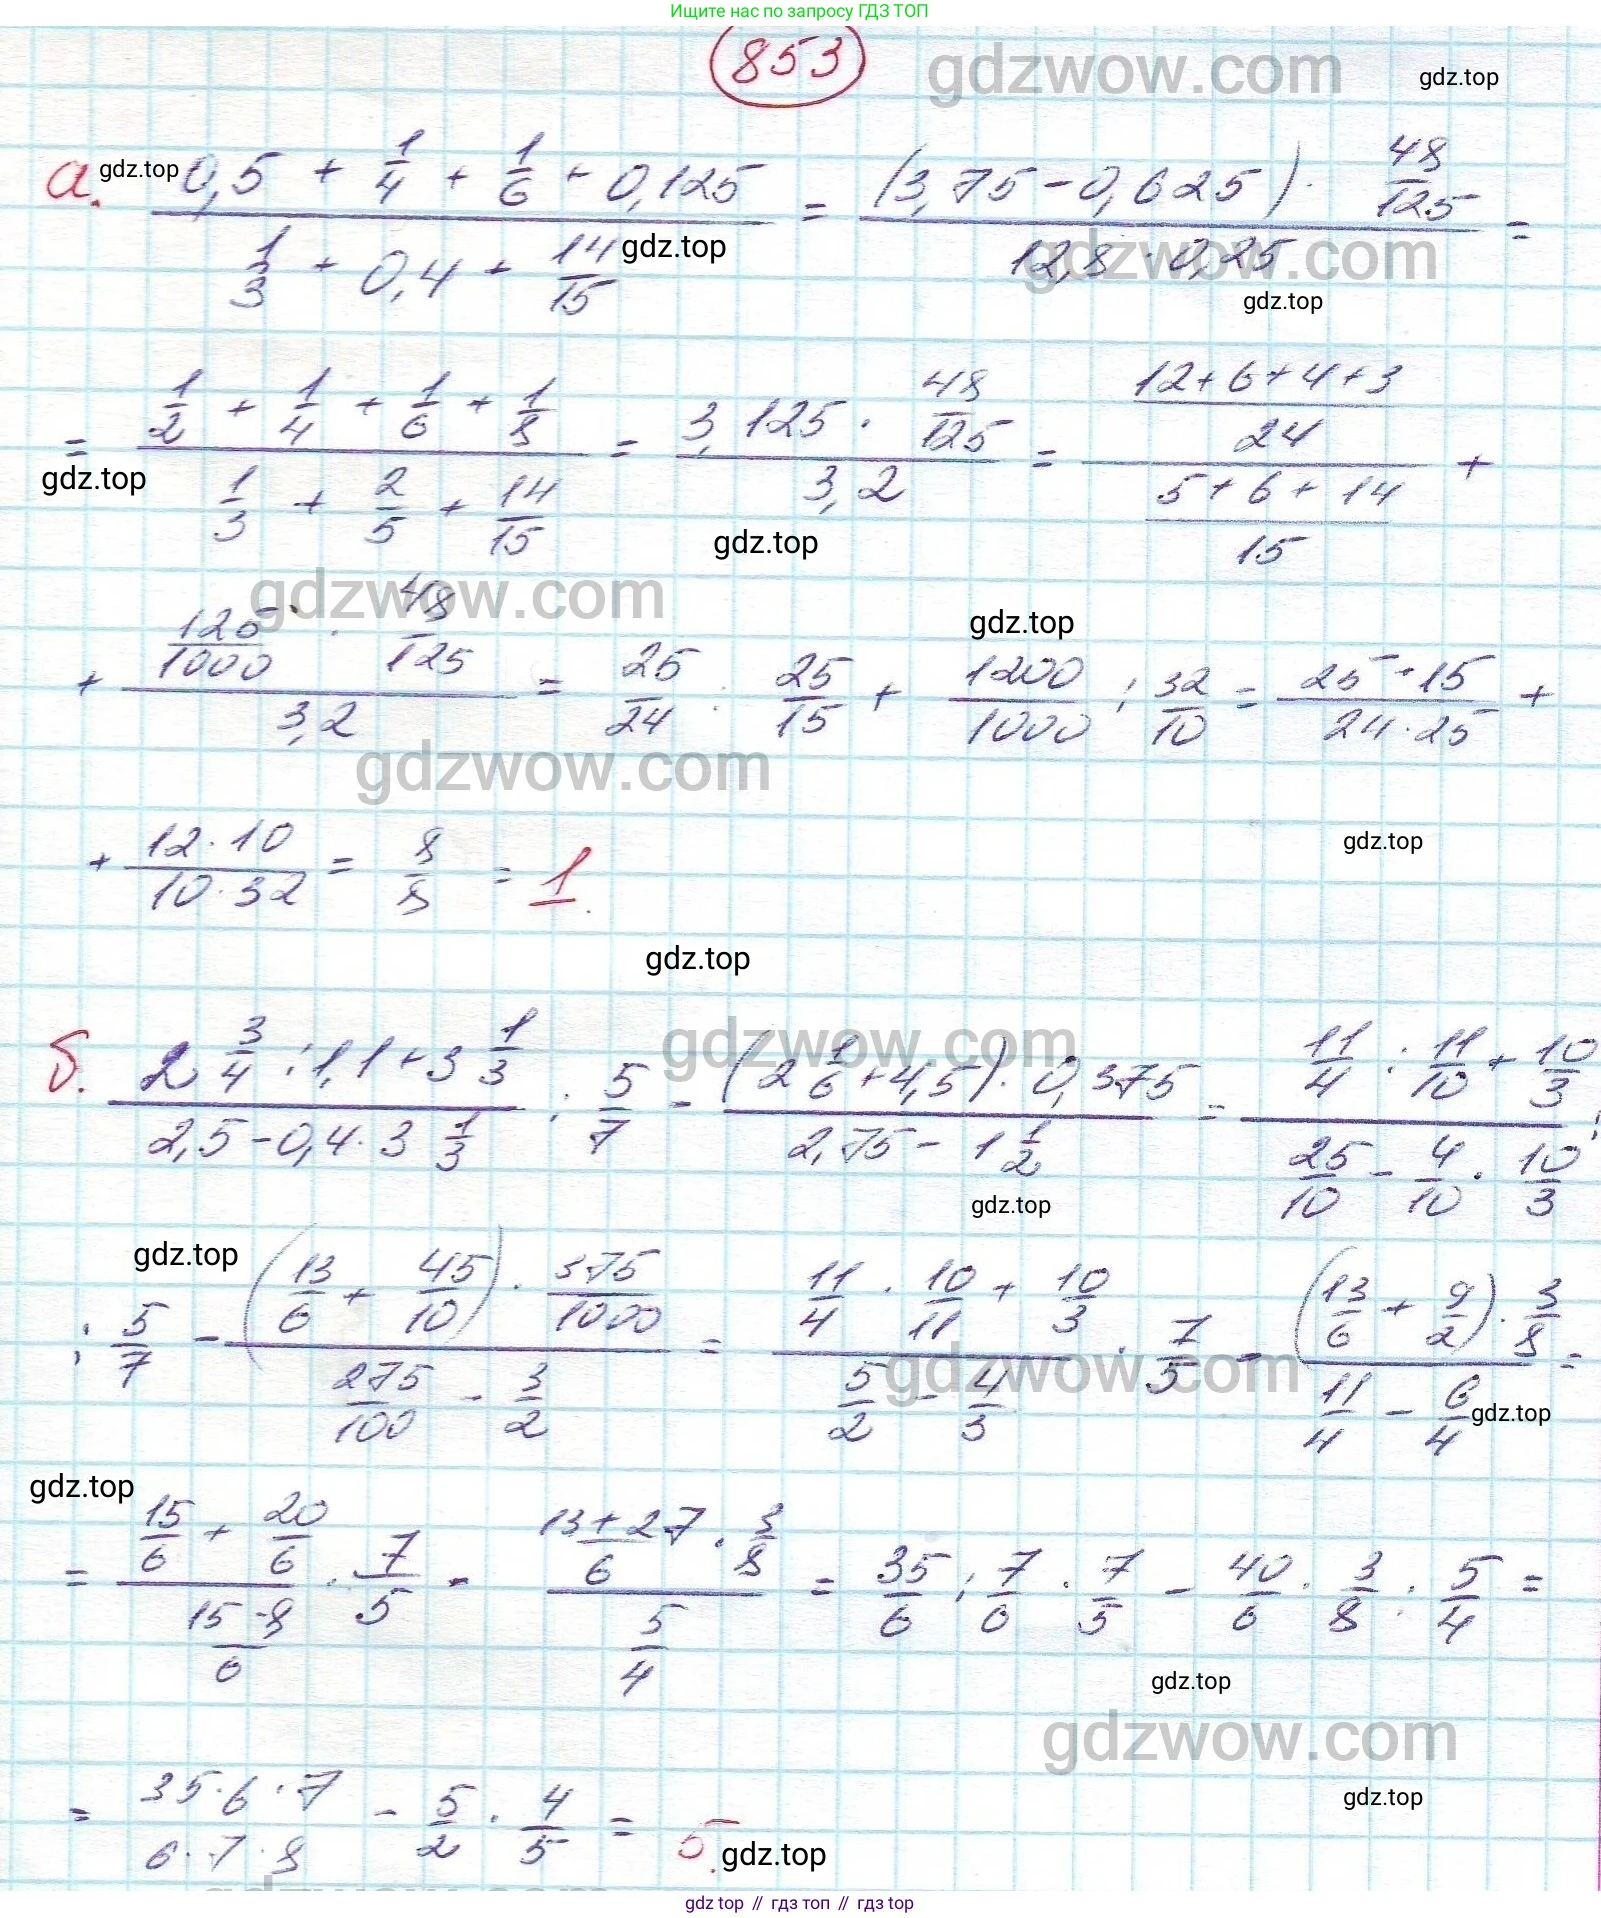 Ищите нас по запросу ГДЗ ТОП
853
gdzwow.com
gdz.top
а. gdz.top (0,5 + 1/4 + 1/6 + 0,125)/(1/3 + 0,4 + 14/15) = ((3,75 - 0,625) · 48/125)/(12,8 · 0,25) =
gdz.top
gdzwow.com
gdz.top
= (1/2 + 1/4 + 1/6 + 1/8)/(1/3 + 2/5 + 14/15) = (3,125 · 48/125)/(3,2) = ((12+6+4+3)/24)/((5+6+14)/15) +
gdz.top
gdz.top
gdzwow.com
gdz.top
+ (125/1000 · 48/125)/(3,2) = 25/24 : 25/15 + 1200/1000 : 32/10 = (25 · 15)/(24 · 25) +
gdzwow.com
+ (12 · 10)/(10 · 32) = 8/8 = 1.
gdz.top
gdz.top
gdzwow.com
б. (2 3/4 : 1,1 + 3 1/3)/(2,5 - 0,4 · 3 1/3) : 5/7 - ((2 1/6 + 4,5) · 0,375)/(2,75 - 1 1/2) = (11/4 : 11/10 + 10/3)/(25/10 - 4/10 · 10/3) :
gdz.top
gdz.top
: 5/7 - ((13/6 + 45/10) · 375/1000)/(275/100 - 3/2) = (11/4 · 10/11 + 10/3)/(5/2 - 4/3) · 7/5 - ((13/6 + 9/2) · 3/8)/(11/4 - 6/4) =
gdzwow.com
gdz.top
gdz.top
= (15/6 + 20/6)/((15-8)/6) · 7/5 - ((13+27)/6 · 3/8)/(5/4) = 35/6 : 7/6 · 7/5 - 40/6 · 3/8 : 5/4 =
gdz.top
gdzwow.com
gdz.top
= (35 · 6 · 7)/(6 · 7 · 8) - 5/2 · 4/5 = 5.
gdz.top
gdzwow.com
gdz top // гдз топ // gdz top